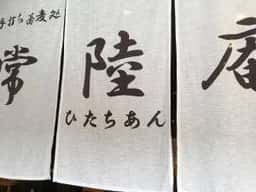 手打ち蕎麦処
常陸庵
ひたちあん